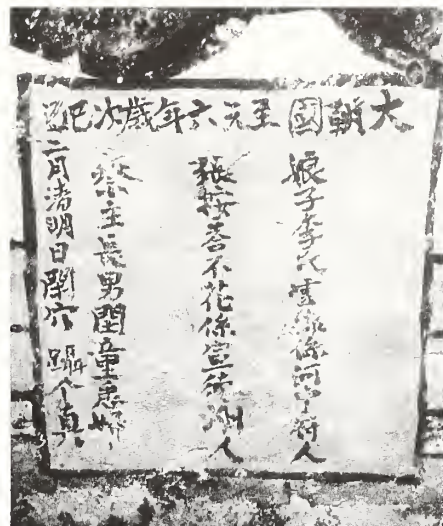 大朝國至元六年歲次己巳
娘子李氏雲線係河中府人
張按荅不花係宣德州人
祭主長男閏童悉婦
二月清明日閉穴 躡人真